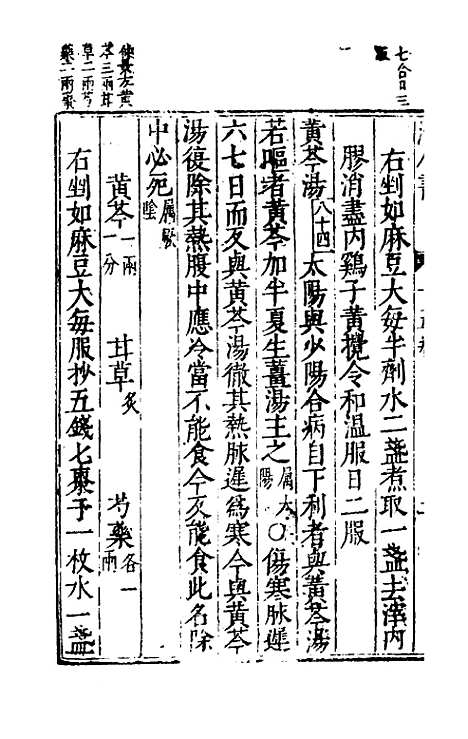 七合日三
服
右剉如麻豆大每半劑水二盞煮取一盞去滓內
膠消盡內鷄子黃攪令和温服日二服
黃芩湯八十四太陽與少陽合病自下利者與黃芩湯
若嘔者黃芩加半夏生薑湯主之屬太陽○傷寒脉遲
六七日而反與黃芩湯徹其熱脉遲爲寒今與黃芩
湯復除其熱腹中應冷當不能食今反能食此名除
中必死屬厥陰
黃芩一兩一分 甘草炙 芍藥各一兩
右剉如麻豆大每服抄五錢七棗子一枚水一盞
黃
芩三兩甘
草二兩芍
藥二兩棗